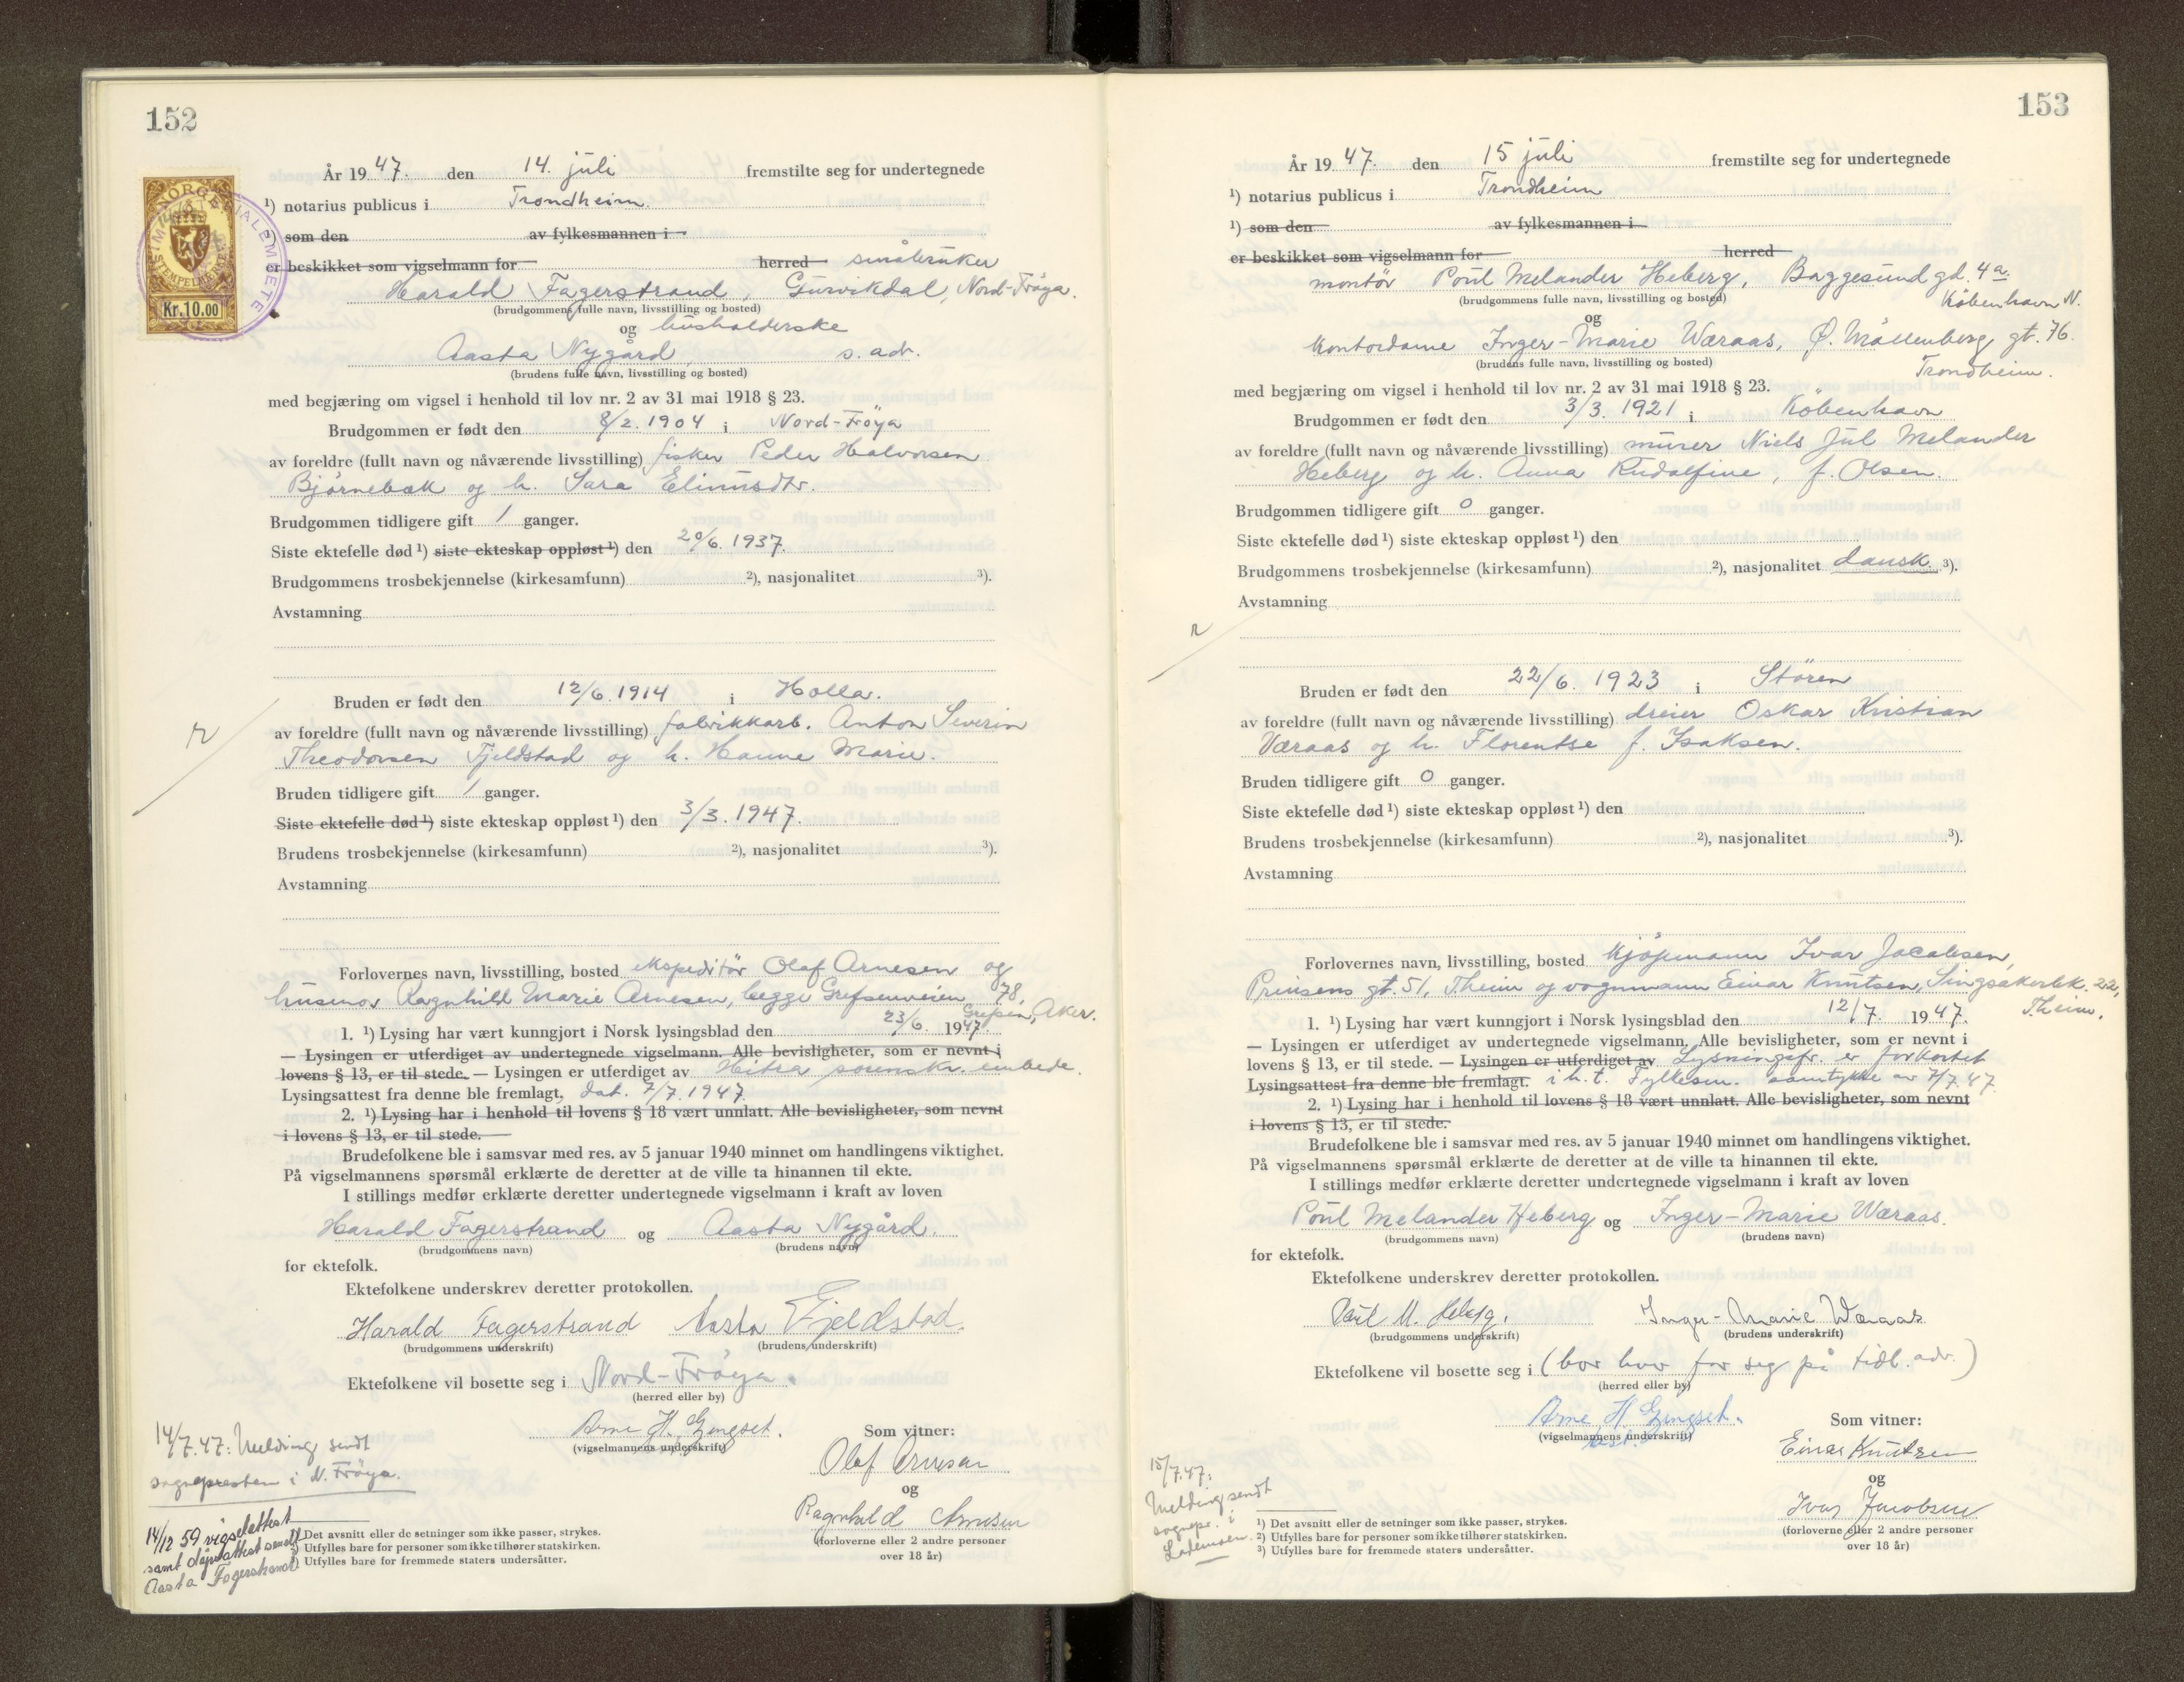 152
NORGE
STEMPELMERKE
Kr.10.00
År 1947. den 14. juli fremstilte seg for undertegnede
¹) notarius publicus i Trondheim.
¹) som den av fylkesmannen i
er beskikket som vigselmann for herred småbruker
Harald Fagerstrand, Gurvikdal, Nord-Fröya.
(brudgommens fulle navn, livsstilling og bosted)
og husholderske
Aasta Nygård s. adr.
(brudens fulle navn, livsstilling og bosted)
med begjæring om vigsel i henhold til lov nr. 2 av 31 mai 1918 § 23.
Brudgommen er født den 8/2. 1904 i Nord-Fröya
av foreldre (fullt navn og nåværende livsstilling) fisker Peder Halvorsen
Bjørnebæk og h. Sara Elinusdtr.
Brudgommen tidligere gift 1 ganger.
Siste ektefelle død ¹) siste ekteskap oppløst ¹) den 20/6. 1937.
Brudgommens trosbekjennelse (kirkesamfunn) ²), nasjonalitet ³).
Avstamning
Bruden er født den 12/6. 1914 i Holla.
av foreldre (fullt navn og nåværende livsstilling) fabrikkarb. Anton Severin
Theodorsen Fjeldstad og h. Hanne Marie.
Bruden tidligere gift 1 ganger.
Siste ektefelle død ¹) siste ekteskap oppløst ¹) den 3/3. 1947.
Brudens trosbekjennelse (kirkesamfunn) ²), nasjonalitet ³).
Avstamning
Forlovernes navn, livsstilling, bosted ekspeditör Olaf Arnesen og
husmor Ragnhild Marie Arnesen, begge Grefsenveien 78,
Grefsen, Aker.
1. ¹) Lysing har vært kunngjort i Norsk lysingsblad den 23/6. 1947.
— Lysingen er utferdiget av undertegnede vigselmann. Alle bevisligheter, som er nevnt i
lovens § 13, er til stede. — Lysingen er utferdiget av Hitra sorenskr. embede.
Lysingsattest fra denne ble fremlagt, dat. 7/7. 1947.
2. ¹) Lysing har i henhold til lovens § 18 vært unnlatt. Alle bevisligheter, som nevnt
i lovens § 13, er til stede.
Brudefolkene ble i samsvar med res. av 5 januar 1940 minnet om handlingens viktighet.
På vigselmannens spørsmål erklærte de deretter at de ville ta hinannen til ekte.
I stillings medfør erklærte deretter undertegnede vigselmann i kraft av loven
Harald Fagerstrand og Aasta Nygård.
(brudgommens navn) (brudens navn)
for ektefolk.
Ektefolkene underskrev deretter protokollen.
Harald Fagerstrand Aasta Fjeldstad.
(brudgommens underskrift) (brudens underskrift)
Ektefolkene vil bosette seg i Nord-Fröya.
(herred eller by)
Arne H. Gengset.
(vigselmannens underskrift)
Som vitner:
Olaf Arnesen
og
Ragnhild Arnesen
(forloverne eller 2 andre personer
over 18 år)
14/7.47: Melding sendt
sognepresten i N. Fröya.
14/12 59 vigselattest
samt dåpsattest sendt
Aasta Fagerstrand
¹) Det avsnitt eller de setninger som ikke passer, strykes.
²) Utfylles bare for personer som ikke tilhører statskirken.
³) Utfylles bare for fremmede staters undersåtter.
153
År 1947. den 15 juli fremstilte seg for undertegnede
¹) notarius publicus i Trondheim
¹) som den av fylkesmannen i
er beskikket som vigselmann for herred
montör Poul Melander Heberg, Baggesund gd. 4 a.
København N.
(brudgommens fulle navn, livsstilling og bosted)
og
kontordame Inger-Marie Wæraas, Ø. Møllenberg gt. 76.
Trondheim.
(brudens fulle navn, livsstilling og bosted)
med begjæring om vigsel i henhold til lov nr. 2 av 31 mai 1918 § 23.
Brudgommen er født den 3/3. 1921 i København
av foreldre (fullt navn og nåværende livsstilling) murer Niels Jul Melander
Heberg og h. Anna Rudolfine, f. Olsen.
Brudgommen tidligere gift 0 ganger.
Siste ektefelle død ¹) siste ekteskap oppløst ¹) den
Brudgommens trosbekjennelse (kirkesamfunn) ²), nasjonalitet dansk. ³).
Avstamning
Bruden er født den 22/6. 1923 i Stören
av foreldre (fullt navn og nåværende livsstilling) dreier Oskar Kristian
Væraas og h. Florentse f. Isaksen.
Bruden tidligere gift 0 ganger.
Siste ektefelle død ¹) siste ekteskap oppløst ¹) den
Brudens trosbekjennelse (kirkesamfunn) ²), nasjonalitet ³).
Avstamning
Forlovernes navn, livsstilling, bosted kjöpmann Ivar Jacobsen,
Prinsens gt. 51, Theim og vognmann Einar Knutsen, Singsakerbk. 22,
Theim.
1. ¹) Lysing har vært kunngjort i Norsk lysingsblad den 12/7. 1947.
— Lysingen er utferdiget av undertegnede vigselmann. Alle bevisligheter, som er nevnt i
lovens § 13, er til stede. — Lysingen er utferdiget av Lysningsfr. er forkortet
Lysingsattest fra denne ble fremlagt. i h. t. Fylkesm. samtykke av 7/7.47.
2. ¹) Lysing har i henhold til lovens § 18 vært unnlatt. Alle bevisligheter, som nevnt
i lovens § 13, er til stede.
Brudefolkene ble i samsvar med res. av 5 januar 1940 minnet om handlingens viktighet.
På vigselmannens spørsmål erklærte de deretter at de ville ta hinannen til ekte.
I stillings medfør erklærte deretter undertegnede vigselmann i kraft av loven
Poul Melander Heberg og Inger-Marie Wæraas.
(brudgommens navn) (brudens navn)
for ektefolk.
Ektefolkene underskrev deretter protokollen.
Poul M. Heberg. Inger-Marie Wæraas
(brudgommens underskrift) (brudens underskrift)
Ektefolkene vil bosette seg i (bor hver for seg på tidl. adr.)
(herred eller by)
Arne H. Gengset.
(vigselmannens underskrift)
Som vitner:
Einar Knutsen
og
Ivar Jacobsen
(forloverne eller 2 andre personer
over 18 år)
15/7.47:
Melding sendt
sognepr. i
Lademoen.
¹) Det avsnitt eller de setninger som ikke passer, strykes.
²) Utfylles bare for personer som ikke tilhører statskirken.
³) Utfylles bare for fremmede staters undersåtter.